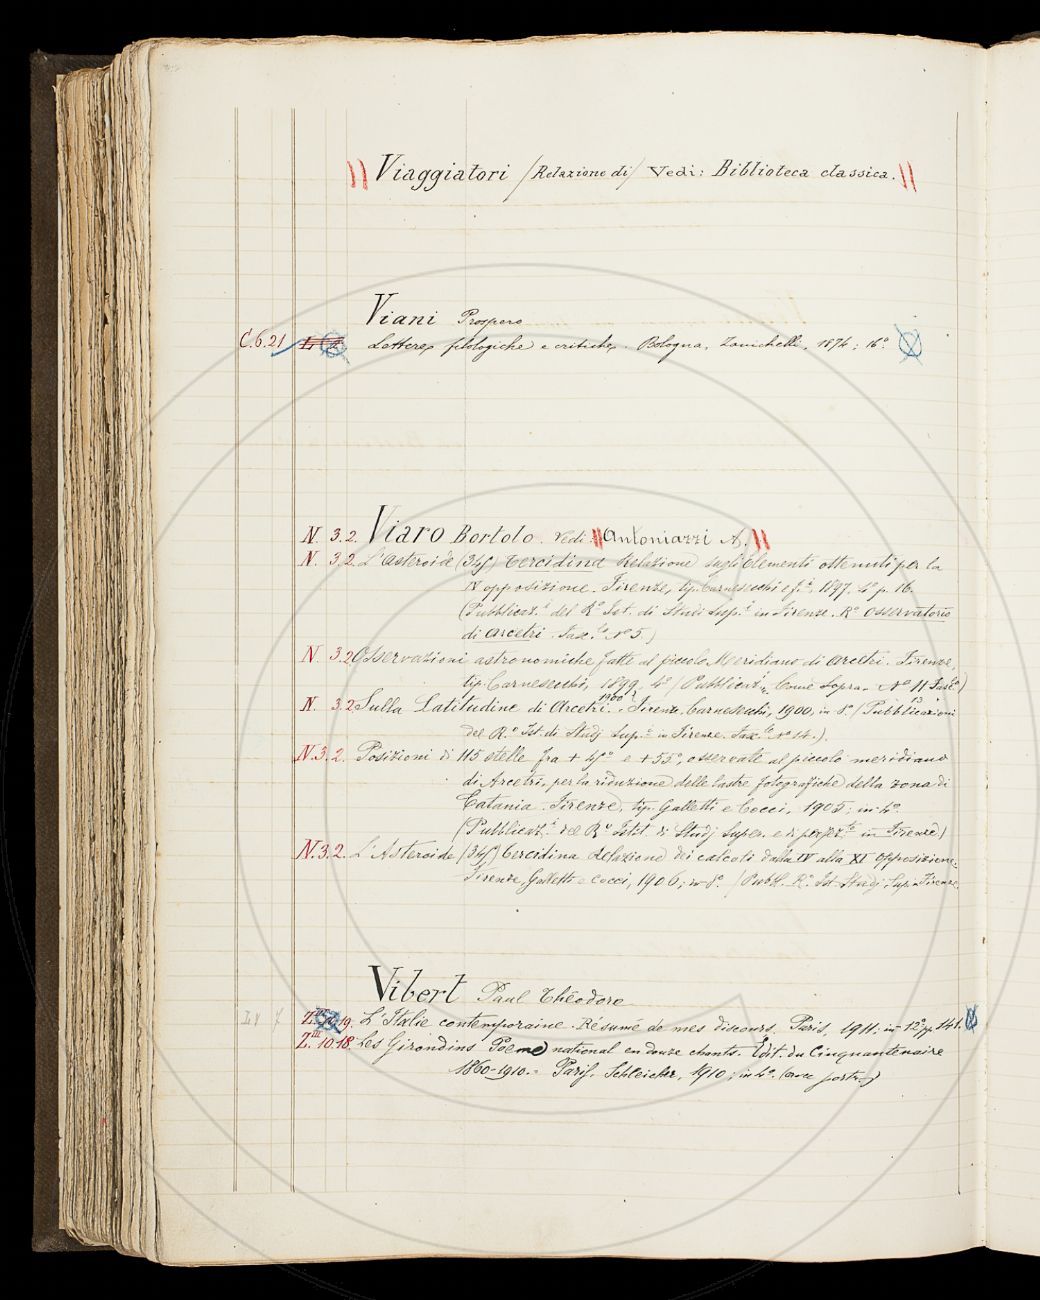 Viaggiatori /Relazione di/ Vedi: Biblioteca classica.
Viani Prospero
C.6.21 Lettere filologiche e critiche. Bologna, Zanichelli, 1874; 16°
N. 3.2. Viaro Bortolo. Vedi Antoniazzi A.
N. 3.2. L'Asteroide (345) Tercidina Relazione degli Elementi ottenuti per la
IV opposizione. Firenze, tip. Carnesecchi e f.i, 1897. 4° p. 16.
(Pubblicaz.i del R.o Ist. di Studi Sup.i in Firenze. R.o Osservatorio
di Arcetri. Fasc.lo N° 5)
N. 3.2 Osservazioni astronomiche fatte al piccolo Meridiano di Arcetri. Firenze,
tip. Carnesecchi, 1899, 4° (Pubblicaz.i Come Sopra - N° 11 Fasc.o)
N. 3.2 Sulla Latitudine di Arcetri. Firenze, Carnesecchi, 1900, in 8°. (Pubblicazioni
del R.o Ist. di Studj Sup.i in Firenze. Fasc.lo N° 14.).
N.3.2. Posizioni di 115 stelle fra + 45° e +55°, osservate al piccolo meridiano
di Arcetri, per la riduzione delle lastre fotografiche della zona di
Catania. Firenze, tip. Galletti e Cocci, in-4°.
(Pubblicaz.i del R.o Istit. di Studj Super. e di perfez.to in Firenze)
N.3.2. L'Asteroide (345) Tercidina Relazione dei calcoli dalla IV alla XI opposizione.
Firenze, Galletti e Cocci, 1906; in-8°. (Pubbl. R.o Ist. Studj Sup. in Firenze.
Vibert Paul Théodore
19. L'Italie contemporaine. Résumé de mes discours. Paris, 1911; in-12° pp. 141.
Z.III 10.18. Les Girondins. Poème national en douze chants. Édit. du Cinquantenaire
1860-1910. = Paris, Schleicher, 1910; in-4°. (avec portr.)